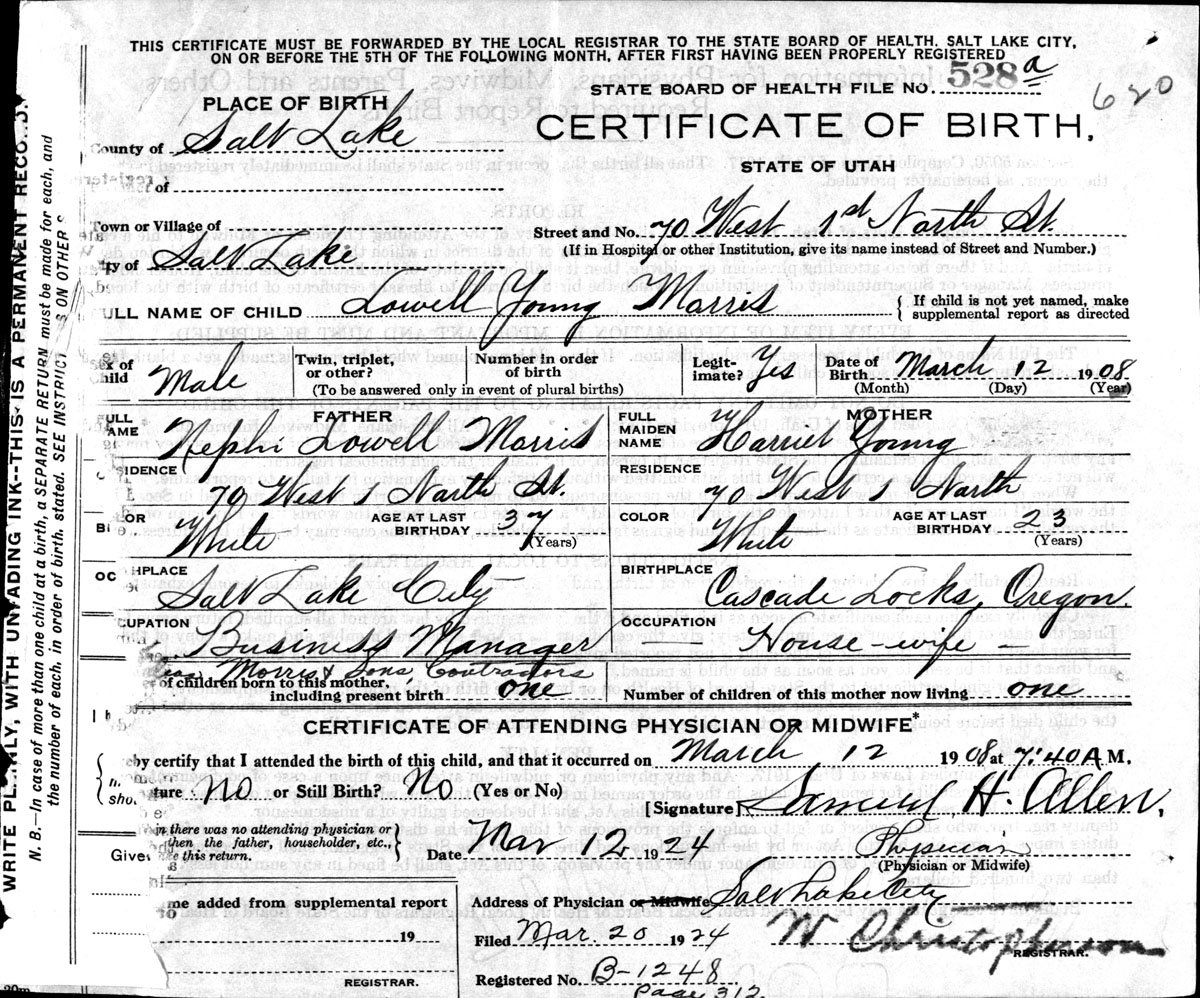 THIS CERTIFICATE MUST BE FORWARDED BY THE LOCAL REGISTRAR TO THE STATE BOARD OF HEALTH, SALT LAKE CITY,
ON OR BEFORE THE 5TH OF THE FOLLOWING MONTH, AFTER FIRST HAVING BEEN PROPERLY REGISTERED
STATE BOARD OF HEALTH FILE NO. 528 a
620
PLACE OF BIRTH
CERTIFICATE OF BIRTH,
STATE OF UTAH
County of Salt Lake
of
Town or Village of
Street and No. 70 West 1st North St.
(If in Hospital or other Institution, give its name instead of Street and Number.)
ity of Salt Lake
ULL NAME OF CHILD Lowell Young Morris
{ If child is not yet named, make
supplemental report as directed
Sex of
Child Male
Twin, triplet,
or other?
Number in order
of birth
(To be answered only in event of plural births)
Legit-
imate? Yes
Date of
Birth March 12 1908
(Month) (Day) (Year)
FATHER
ULL
AME Nephi Lowell Morris
MOTHER
FULL
MAIDEN
NAME Harriet Young
SIDENCE
70 West 1 North St.
RESIDENCE
70 West 1 North
LOR
White
AGE AT LAST
BIRTHDAY 37
(Years)
COLOR
White
AGE AT LAST
BIRTHDAY 23
(Years)
HPLACE
Salt Lake City
BIRTHPLACE
Cascade Locks, Oregon.
CUPATION
Business Manager
Morris & Sons, Contractors
OCCUPATION
House-wife
of children born to this mother,
including present birth one
Number of children of this mother now living one
CERTIFICATE OF ATTENDING PHYSICIAN OR MIDWIFE*
eby certify that I attended the birth of this child, and that it occurred on March 12 1908 at 7:40 A M.
ture No or Still Birth? No (Yes or No)
[Signature] Samuel H. Allen,
in there was no attending physician or
then the father, householder, etc.,
ke this return.
Date Mar 12 1924
Physician
(Physician or Midwife)
me added from supplemental report
19
REGISTRAR.
Address of Physician or Midwife Salt Lake City
Filed Mar. 20 1924
W Christopherson
REGISTRAR.
Registered No. B-1248
Page 312
WRITE PLAINLY, WITH UNFADING INK--THIS IS A PERMANENT RECO
N. B.—In case of more than one child at a birth, a SEPARATE RETURN must be made for each, and
the number of each, in order of birth, stated. SEE INSTRUCT S ON OTHER S